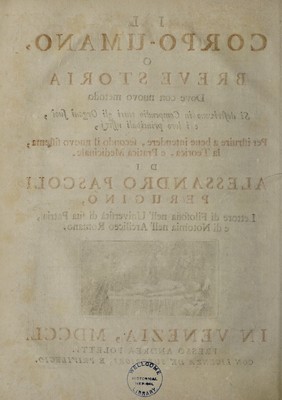 IL
CORPO-UMANO,
O
BREVE STORIA
Dove con nuovo metodo
Si descrivono in Compendio tutti gli Organi suoi,
e i loro principali uffizj;
Per istruirsi a bene intendere, secondo il nuovo sistema,
la Teorica, e Pratica Medicinale,
DI
ALESSANDRO PASCOLI
PERUGINO,
Lettore di Filosofia nell' Università di sua Patria,
e di Notomia nell'
IN VENEZIA, MDCCL.
PRESSO ANDREA POLETTI.
CON LICENZA DE' SUPERIORI, E PRIVILEGIO.
WELLCOME
HISTORICAL
MEDICAL
LIBRARY